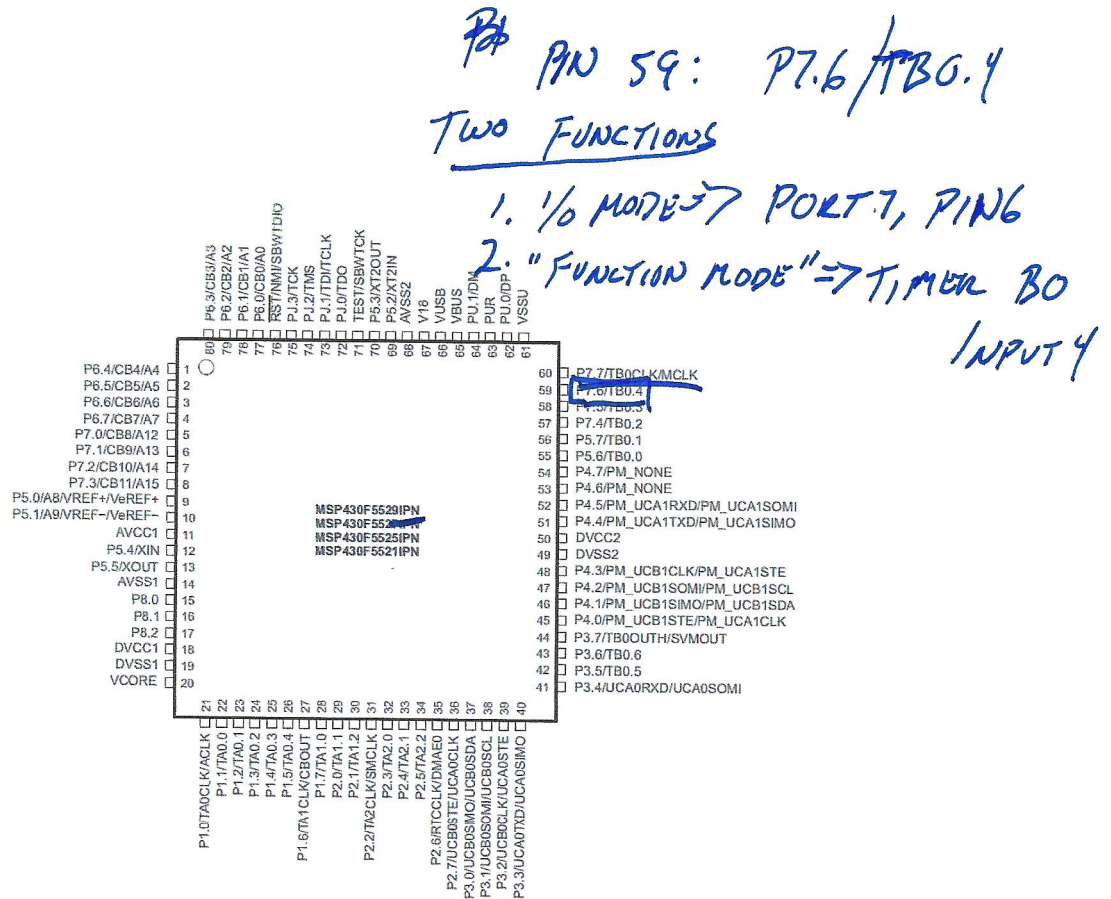 PIN 59: P7.6/TB0.4
TWO FUNCTIONS
1. I/O MODE => PORT 7, PIN 6
2. "FUNCTION MODE" => TIMER B0
INPUT 4
P6.3/CB3/A3
P6.2/CB2/A2
P6.1/CB1/A1
P6.0/CB0/A0
RST/NMI/SBWTDIO
PJ.3/TCK
PJ.2/TMS
PJ.1/TDI/TCLK
PJ.0/TDO
TEST/SBWTCK
P5.3/XT2OUT
P5.2/XT2IN
AVSS2
V18
VUSB
VBUS
PU.1/DM
PUR
PU.0/DP
VSSU
80 79 78 77 76 75 74 73 72 71 70 69 68 67 66 65 64 63 62 61
P6.4/CB4/A4 1
P6.5/CB5/A5 2
P6.6/CB6/A6 3
P6.7/CB7/A7 4
P7.0/CB8/A12 5
P7.1/CB9/A13 6
P7.2/CB10/A14 7
P7.3/CB11/A15 8
P5.0/A8/VREF+/VeREF+ 9
P5.1/A9/VREF−/VeREF− 10
AVCC1 11
P5.4/XIN 12
P5.5/XOUT 13
AVSS1 14
P8.0 15
P8.1 16
P8.2 17
DVCC1 18
DVSS1 19
VCORE 20
MSP430F5529IPN
MSP430F5527IPN
MSP430F5525IPN
MSP430F5521IPN
60 P7.7/TB0CLK/MCLK
59 P7.6/TB0.4
58 P7.5/TB0.3
57 P7.4/TB0.2
56 P5.7/TB0.1
55 P5.6/TB0.0
54 P4.7/PM_NONE
53 P4.6/PM_NONE
52 P4.5/PM_UCA1RXD/PM_UCA1SOMI
51 P4.4/PM_UCA1TXD/PM_UCA1SIMO
50 DVCC2
49 DVSS2
48 P4.3/PM_UCB1CLK/PM_UCA1STE
47 P4.2/PM_UCB1SOMI/PM_UCB1SCL
46 P4.1/PM_UCB1SIMO/PM_UCB1SDA
45 P4.0/PM_UCB1STE/PM_UCA1CLK
44 P3.7/TB0OUTH/SVMOUT
43 P3.6/TB0.6
42 P3.5/TB0.5
41 P3.4/UCA0RXD/UCA0SOMI
21 22 23 24 25 26 27 28 29 30 31 32 33 34 35 36 37 38 39 40
P1.0/TA0CLK/ACLK
P1.1/TA0.0
P1.2/TA0.1
P1.3/TA0.2
P1.4/TA0.3
P1.5/TA0.4
P1.6/TA1CLK/CBOUT
P1.7/TA1.0
P2.0/TA1.1
P2.1/TA1.2
P2.2/TA2CLK/SMCLK
P2.3/TA2.0
P2.4/TA2.1
P2.5/TA2.2
P2.6/RTCCLK/DMAE0
P2.7/UCB0STE/UCA0CLK
P3.0/UCB0SIMO/UCB0SDA
P3.1/UCB0SOMI/UCB0SCL
P3.2/UCB0CLK/UCA0STE
P3.3/UCA0TXD/UCA0SIMO